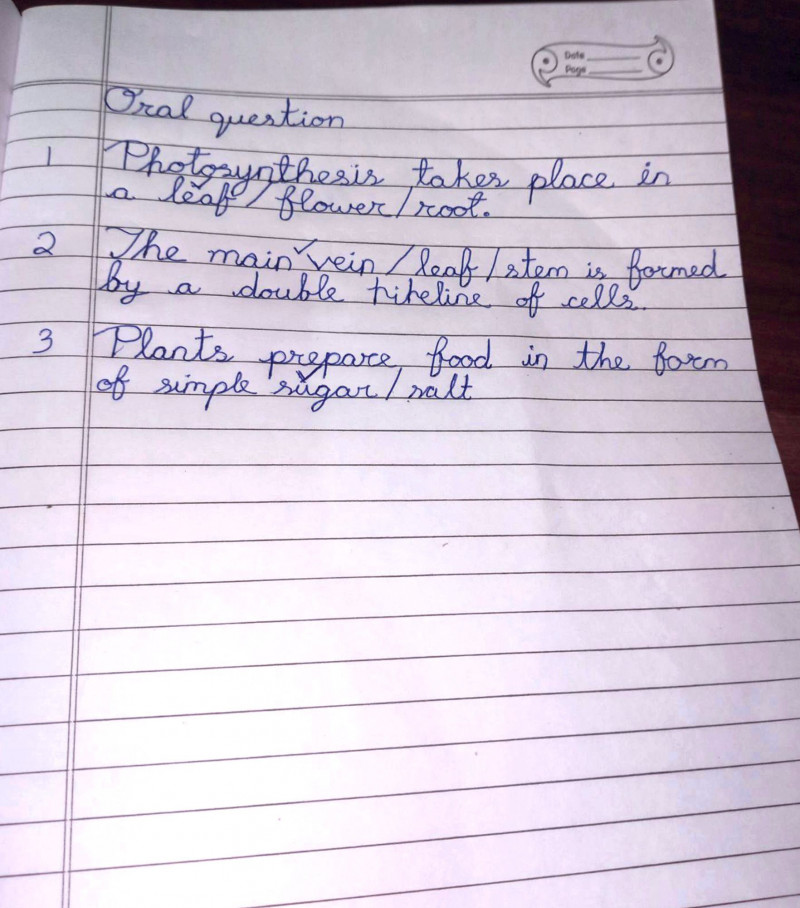 Date
Page
Oral question
1 Photosynthesis takes place in
a leaf / flower / root.
2 The main vein / leaf / stem is formed
by a double pipeline of cells.
3 Plants prepare food in the form
of simple sugar / salt